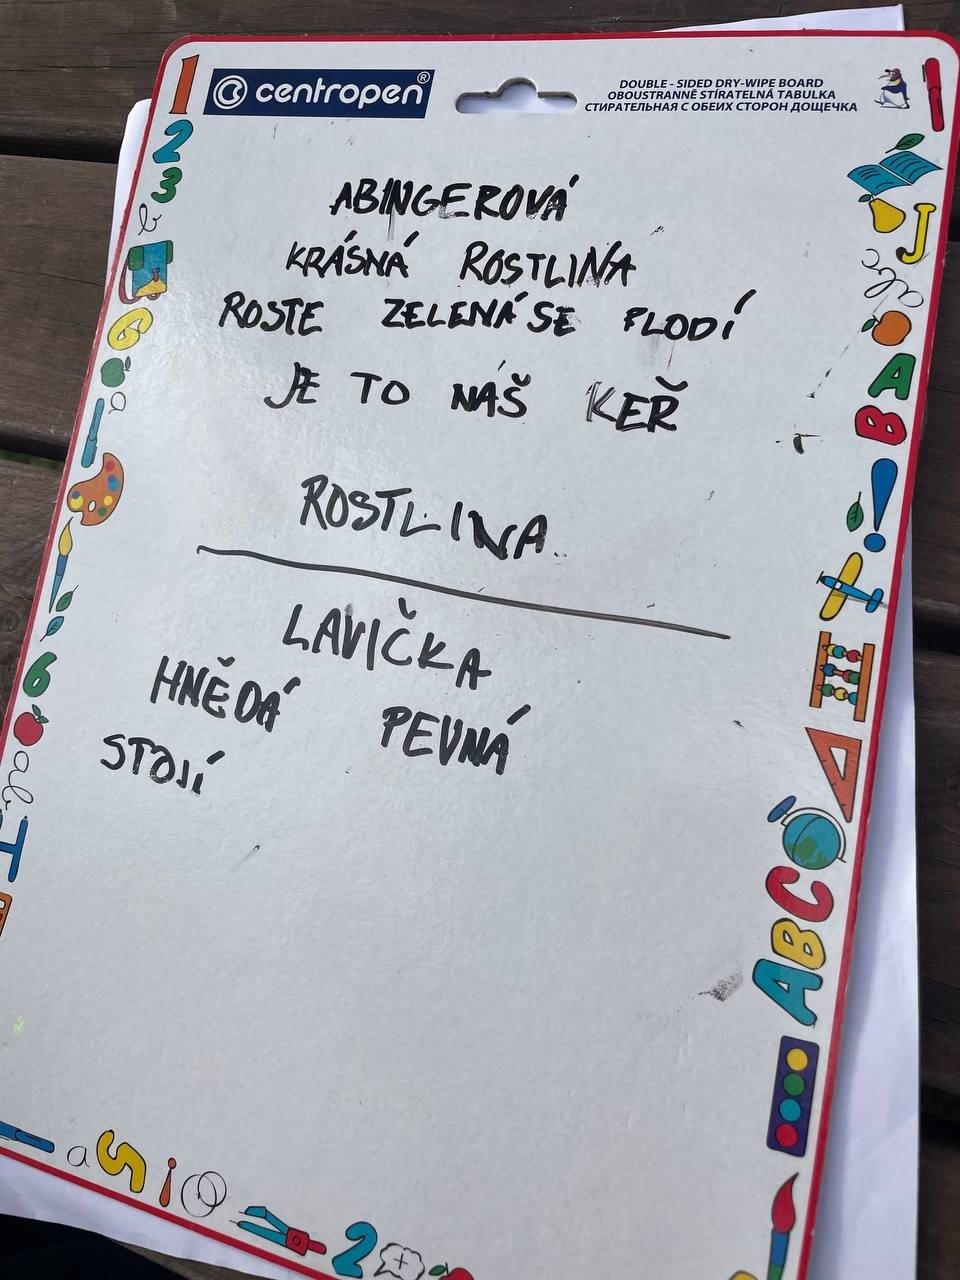 centropen®
DOUBLE - SIDED DRY-WIPE BOARD
OBOUSTRANNĚ STÍRATELNÁ TABULKA
СТИРАТЕЛЬНАЯ С ОБЕИХ СТОРОН ДОЩЕЧКА
ABINGEROVÁ
KRÁSNÁ ROSTLINA
ROSTE ZELENÁ SE PLODÍ
JE TO NÁŠ KEŘ
ROSTLINA
LAVIČKA
HNĚDÁ PEVNÁ
STOJÍ